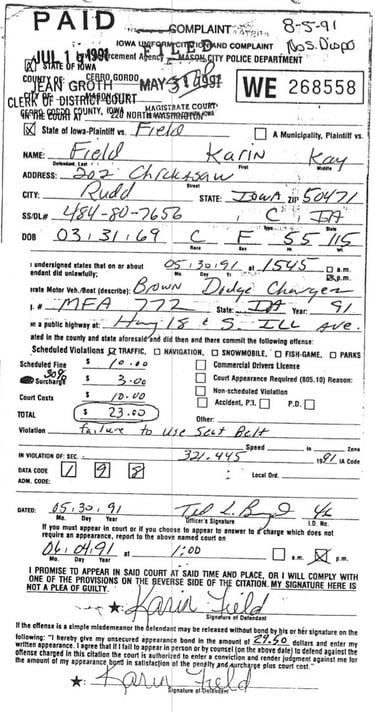 PAID
COMPLAINT
8-5-91
FILED
IOWA UNIFORM CITATION AND COMPLAINT
JUL 1 1991
MASON CITY POLICE DEPARTMENT
STATE OF IOWA
COUNTY OF: CERRO GORDO
MAY 31 1991
JEAN GROTH
WE 268558
CLERK OF DISTRICT COURT
CERRO GORDO COUNTY, IOWA
MAGISTRATE COURT
IN THE COURT AT 220 NORTH WASHINGTON
State of Iowa-Plaintiff vs. Field
A Municipality, Plaintiff vs.
NAME: Field Karin Kay
Defendant, Last First Middle
ADDRESS: 202 Chickasaw
Street
CITY: Rudd STATE: Iowa ZIP 50471
SS/DL# 484-80-7656 C IA
Type State
DOB 03.31.69 C F 55 115
Mo. Day Year Race Sex Ht. Wt.
undersigned states that on or about 05.30.91 at 1545 a.m.
endant did unlawfully: Mo. Day Yr. p.m.
rate Motor Veh./Boat (describe): Brown Dodge Charger
. # MFA 772 State: IA Year: 91
n a public highway at: Hwy 18 & S. ILL Ave.
ated in the county and state aforesaid and did then and there commit the following offense:
Scheduled Violations TRAFFIC, NAVIGATION, SNOWMOBILE, FISH-GAME, PARKS
Scheduled Fine $ 10.00 Commercial Drivers License
30% Surcharge $ 3.00 Court Appearance Required (805.10) Reason:
Non-scheduled Violation
Court Costs $ 10.00 Accident, P.I. P.D.
TOTAL $ 23.00 Other:
Violation failure to use Seat Belt
Speed in Zone
IN VIOLATION OF: SEC. 321.445 1991 IA Code
DATA CODE 1 9 8 Local Ord.
ADM. CODE:
DATED: 05.30.91
Mo. Day Year Officer's Signature I.D. No.
If you must appear in court or if you choose to appear to answer to a charge which does not
require an appearance, report to the above named court on
06.04.91 at 1:00 a.m. p.m.
Mo. Day Year
I PROMISE TO APPEAR IN SAID COURT AT SAID TIME AND PLACE, OR I WILL COMPLY WITH
ONE OF THE PROVISIONS ON THE REVERSE SIDE OF THE CITATION. MY SIGNATURE HERE IS
NOT A PLEA OF GUILTY.
Karin Field
Signature of Defendant
If the offense is a simple misdemeanor the defendant may be released without bond by his or her signature on the
following: "I hereby give my unsecured appearance bond in the amount of 29.50 dollars and enter my
written appearance. I agree that if I fail to appear in person or by counsel (on the above date) to defend against the
offense charged in this citation the court is authorized to enter a conviction and render judgment against me for
the amount of my appearance bond in satisfaction of the penalty and surcharge plus court cost."
Karin Field
Signature of Defendant